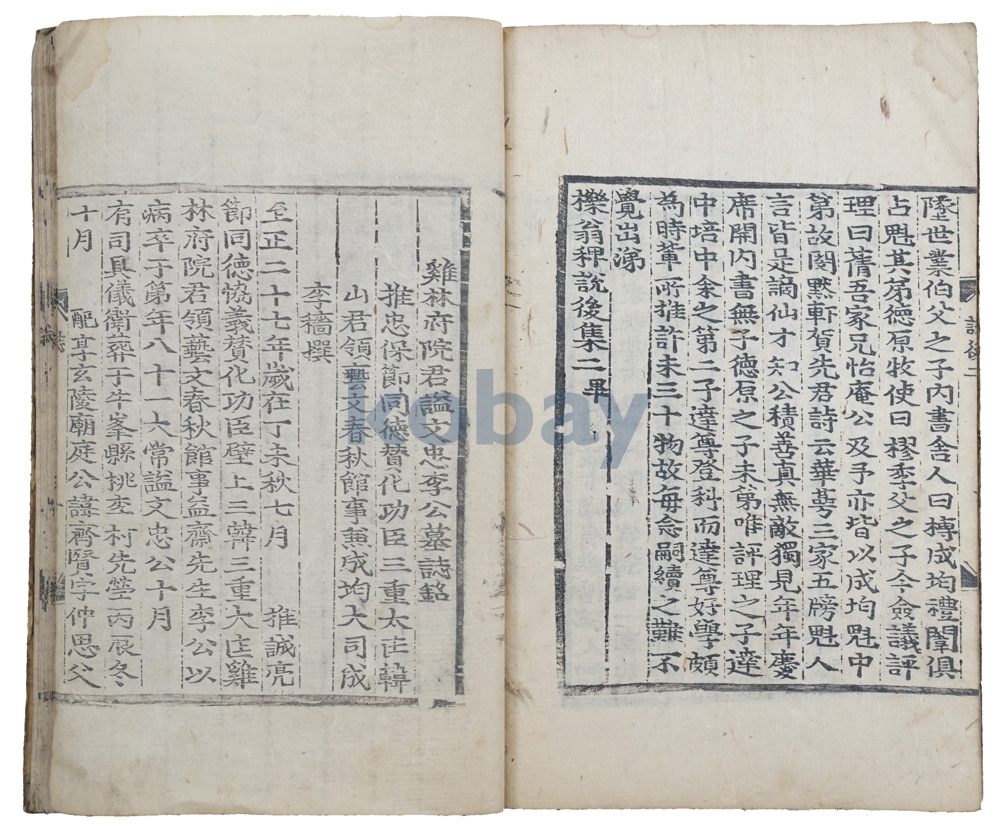 陞世業伯父之子內書舍人曰槫成均禮闈俱
占魁其茅德原牧使曰樛季父之子今僉議評
理曰蒨吾家兄怡庵公及予亦皆以成均魁中
第故閔默軒賀先君詩云華萼三家五牓魁人
言皆是謫仙才知公積善真無敵獨見年年慶
席開內書無子德原之子未第唯評理之子達
中培中余之第二子達尊登科而達尊好學頗
為時輩所推許未三十物故每念嗣續之難不
覺出涕
櫟翁稗說後集二畢
說後二
雞林府院君謚文忠李公墓誌銘
推忠保節同德賛化功臣三重大匡韓
山君領藝文春秋館事兼成均大司成
李穡撰
至正二十七年歲在丁未秋七月 推誠亮
節同德協義賛化功臣壁上三韓三重大匡雞
林府院君領藝文春秋館事益齋先生李公以
病卒于第年八十一大常謚文忠公十月
有司具儀衛葬于牛峯縣桃李村先塋丙辰冬
十月 配享玄陵廟庭公諱齊賢字仲思父
kobay